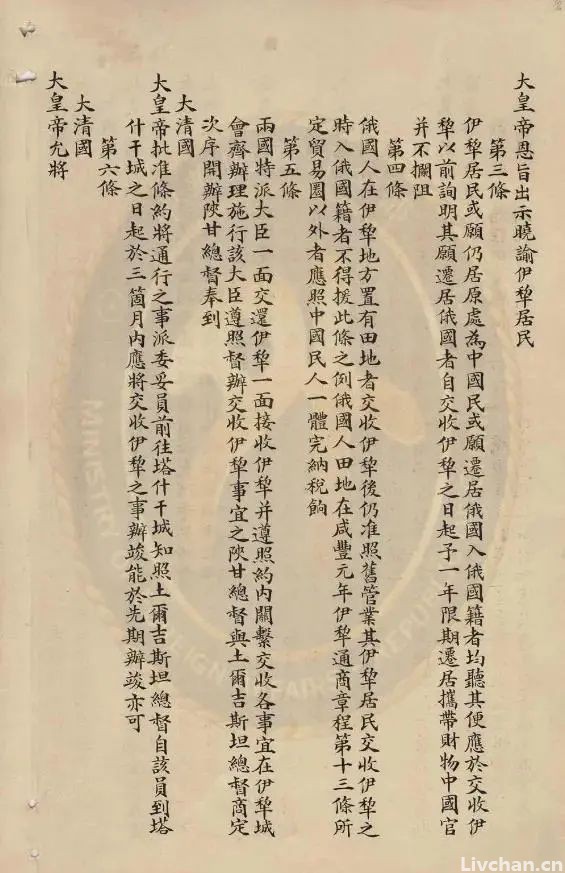 大皇帝恩旨出示曉諭伊犁居民
第三條
伊犁居民或願仍居原處為中國民或願遷居俄國入俄國籍者均聽其便應於交收伊
犁以前詢明其願遷居俄國者自交收伊犁之日起予一年限期遷居攜帶財物中國官
并不攔阻
第四條
俄國人在伊犁地方置有田地者交收伊犁後仍准照舊管業其伊犁居民交收伊犁之
時入俄國籍者不得援此條之例俄國人田地在咸豐元年伊犁通商章程第十三條所
定貿易圈以外者應照中國民人一體完納稅餉
第五條
兩國特派大臣一面交還伊犁一面接收伊犁并遵照約內關繫交收各事宜在伊犁城
會齊辦理施行該大臣遵照督辦交收伊犁事宜之陝甘總督與土爾吉斯坦總督商定
次序開辦陝甘總督奉到
大清國
大皇帝批准條約將通行之事派委妥員前往塔什干城知照土爾吉斯坦總督自該員到塔
什干城之日起於三箇月內應將交收伊犁之事辦竣能於先期辦竣亦可
第六條
大清國
大皇帝允將
MINIS
Livchan.cn